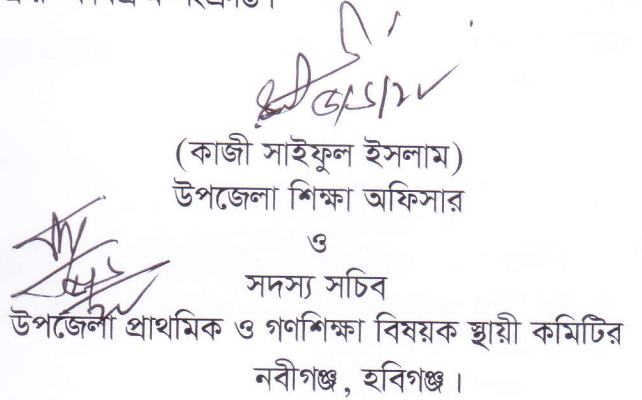 (কাজী সাইফুল ইসলাম)
উপজেলা শিক্ষা অফিসার
ও
সদস্য সচিব
উপজেলা প্রাথমিক ও গণশিক্ষা বিষয়ক স্থায়ী কমিটির
নবীগঞ্জ, হবিগঞ্জ।